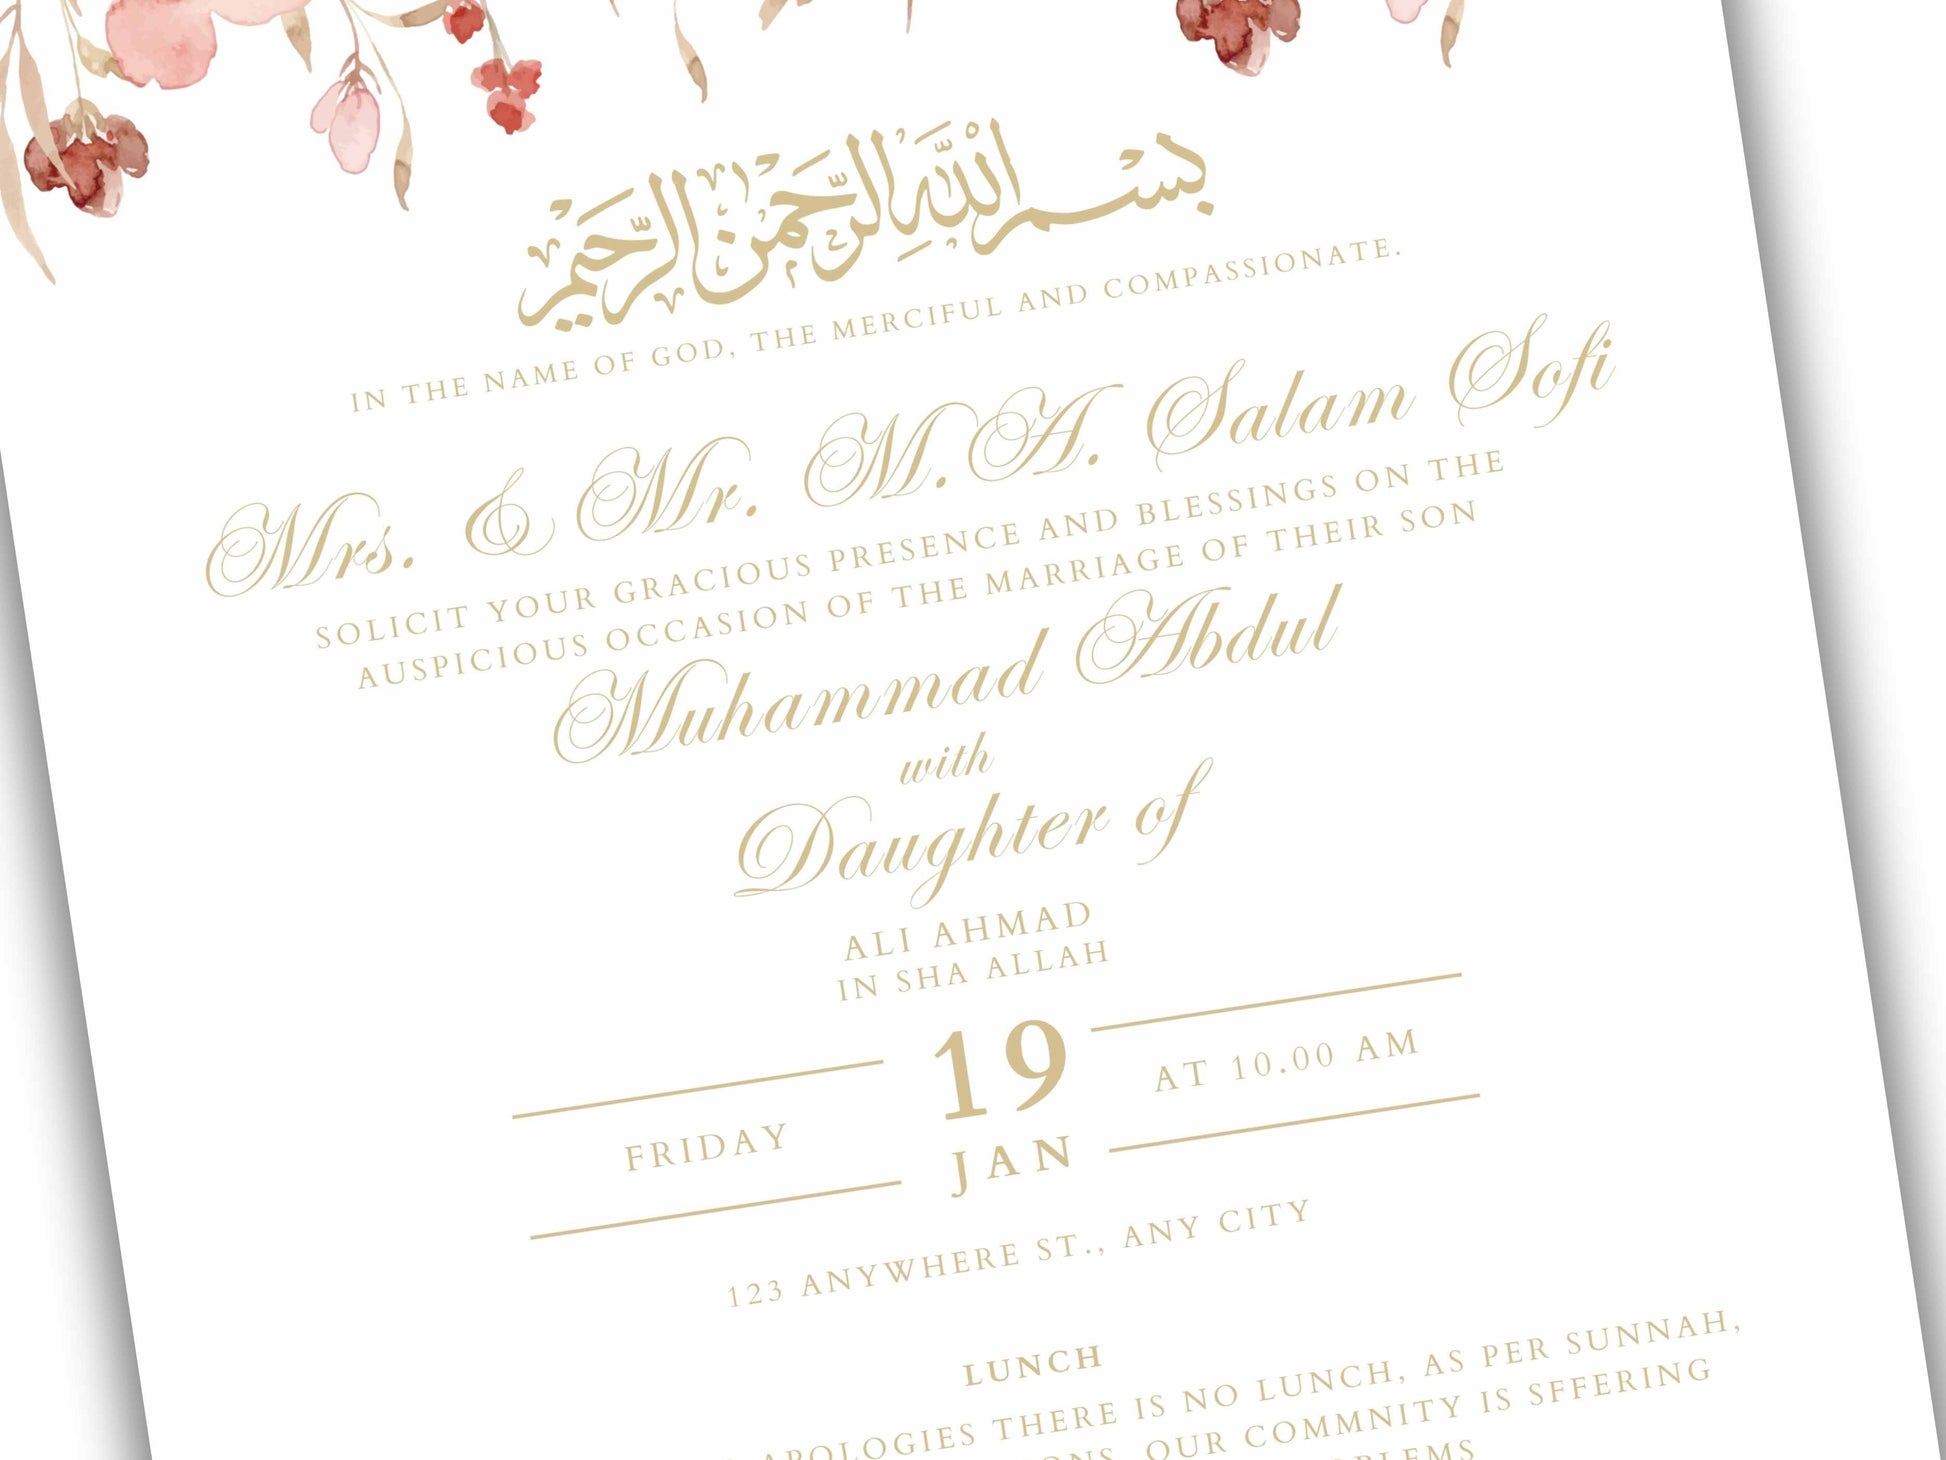 بِسْمِ اللَّهِ الرَّحْمَٰنِ الرَّحِيمِ
IN THE NAME OF GOD, THE MERCIFUL AND COMPASSIONATE.
Mrs. & Mr. M.A. Salam Sofi
SOLICIT YOUR GRACIOUS PRESENCE AND BLESSINGS ON THE
AUSPICIOUS OCCASION OF THE MARRIAGE OF THEIR SON
Muhammad Abdul
with
Daughter of
ALI AHMAD
IN SHA ALLAH
FRIDAY
19
JAN
AT 10.00 AM
123 ANYWHERE ST., ANY CITY
LUNCH
APOLOGIES THERE IS NO LUNCH, AS PER SUNNAH,
OUR COMMNITY IS SFFERING